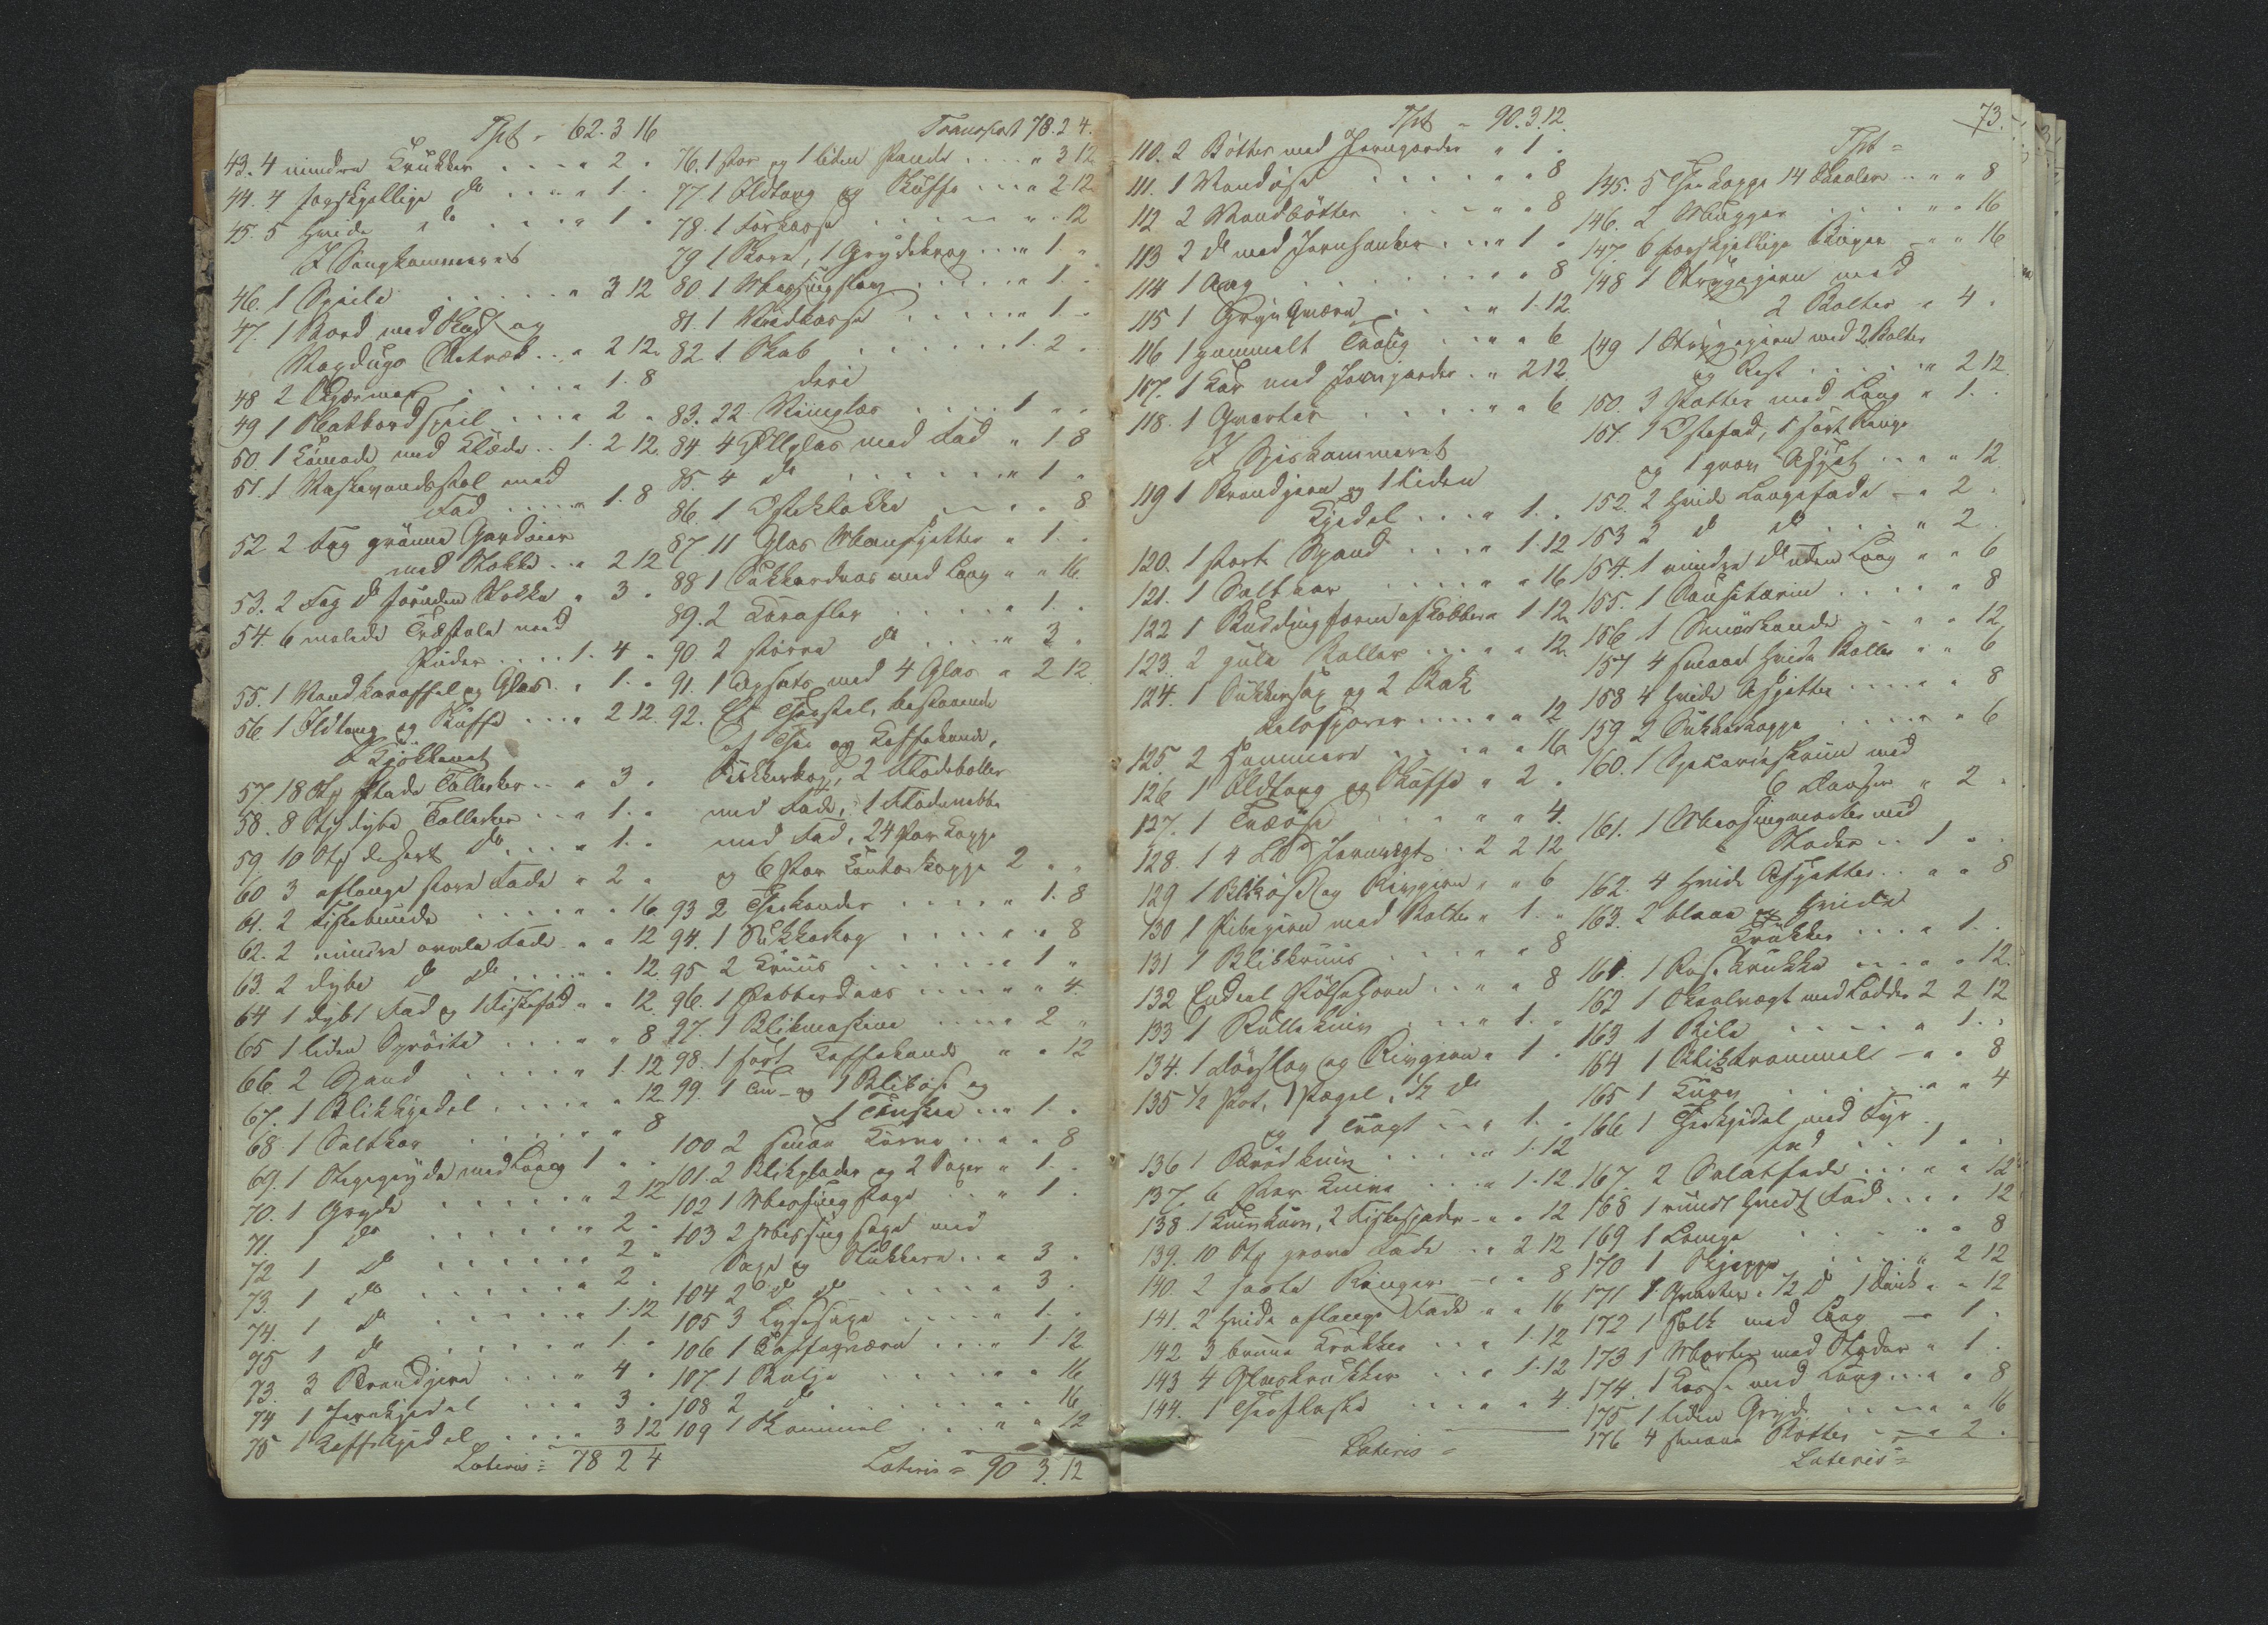 Tpt - 62. 3 16
43. 4 mindre Krukker . . . . " 2 "
44. 4 forskjellige do . . . . " 1 . "
45. 5 hvide do . . . . " 1 . "
I Sengkammeret
46. 1 Speile . . . . . " 3 12
47. 1 Bord med Skuf og
Voxdugs Betræk . . " 2 12
48 2 Skjærme . . . . . " 1. 8
49 1 Natbordspeil . . . . " 2 "
50. 1 Komode med Klæde . . 1. 2 12.
51. 1 Vaskevandsstol med
Fad . . . . . " 1. 8
52. 2 Fag grønne Gardiner
med Stokke . . " 2 12
53. 2 Fag do foruden Stokke " 3 "
54. 6 malede Træstole med
Puder . . . . 1. 4 "
55. 1 Vandkaraffel og Glas . " 1. "
56 1 Ildtang og Skuffe . . . " 2 12.
I Kjøkkenet
57. 18 Stk flade Tallerker . . " 3 "
58. 8 Stk dybe Tallerker . . " 1. "
59 10 Stk desert do . . . . " 1. "
60 3 aflange store Fade " 2 "
61. 2 Fiskebunde . . . . . " " 16
62. 2 mindre ovale Fade . " " 12
63. 2 dybe do do . . . . . " 12
64 1 dybt Fad og 1 Fiskefad " " 12
65 1 liden Sprøite . . . . " " 8
66. 2 Spand . . . . . " 1. 12
67. 1 Blikkjedel . . . . . " 12
68. 1 Saltkar . . . . . . " " 8
69. 1 Stegegryde med Laag 1 " "
70. 1 Gryde . . . . . " 2 12
71. 1 do . . . . . . " 2 "
72 1 do . . . . . . " 2 "
73. 1 do . . . . . . " 2 "
74. 1 do . . . . . " 1. 12
75 1 do . . . . . " 1. "
73. 3 Brandjern . . . . " 4 "
74 1 Jernkjedel . . . " 3 "
75 1 Kaffekjedel . . . . " 3 12
Lateris = 78 2 4
Transport 78. 2 4.
76. 1 stor og 1 liden Pande . . . . " 3 12
77. 1 Ildtang og Skuffe . . . " 2 12
78. 1 Torkasse . . . . . " " 12
79 1 , 1 Grydekrog . . . " 1. "
80 1 Messing . . . . . " 1. "
81. 1 Vedkasse . . . . . " 1 "
82 1 Skab . . . . . . 1. 2 .
deri
83. 22 Viinglas . . . . 1 " "
84. 4 Ølglas med Fad " 1. 8
85. 4 do . . . . . . . " 1 "
86. 1 Osteklokke . . . . " 8
87. 11 Glas Asjetter " 1. "
88 1 Sukkerdaas med Laag " " 16.
89. 2 Karafler . . . . . " 1. "
90. 2 større do . . . . " 3 "
91. 1 Opsats med 4 Glas " 2 12
92. Et Thestel, bestaaende
af The og Kaffekande,
Sukkerkop, 2 Flødeboller
med Fade, 1 Flødenebbe
med Fad, 24 Par Koppe
og 6 Par Koppe 2 " "
93 2 Theekander . . . . . " 1. 8
94. 1 Sukkerkop . . . . . " " 8
95 2 Kruus . . . . . . " 1 "
96. 1 Pebberdaas . . . . . " " 4.
97. 1 Blikmaskine . . . . " 2 "
98. 1 sort Kaffekande . " " 12
99. 1 Tin- og 1 Blikøse og
1 Tinskee . . " 1. "
100 2 smaa Kurve . . " " 8
101. 2 Blikplader og 2 " 1. "
102 1 Messing Stage . . " 1 "
103 2 Messing Stage med
Saxe og Slukkere . . " 3 .
104 2 do do . . . . . " 3 .
105 3 Lysesaxe . . . . . " 1. .
106 1 Kaffeqværn . . . " 1. 12
107. 1 Balje . . . . . . " " 16
108 2 do . . . . . . " " 16
109 1 . . . . " " 12
Lateris = 90 3. 12
Tpt - 90. 3. 12.
110. 2 Bøtter med Jerngjorder " 1 .
111. 1 Vandøse . . . . . . " " 8
112 2 Vandbøtter . . . . " " 8
113 2 do med Jernhanker . . . " 1 .
114 1 Aag . . . . . . . " " 8
115 1 Gryn Qværn . . . . . " 1. 12.
116 1 gammelt Traug . . . " " 6
117. 1 Kar med Jerngjorder . " 2 12
118. 1 Qvarter . . . . . . " " 6
I Spiskammeret
119 1 Brandjern og 1 liden
Kjedel . . . " 1. .
120. 1 stort Spand . . . . " 1. 12
121. 1 Saltkar . . . . . " " 16
122 1 Buddingform af Kobber " 1. 12
123. 2 gule Boller . . . . " " 12.
124. 1 Sukkersax og 2 Bak
kelssporer . . . . " " 12
125 2 Hammere . . . . " " 16
126 1 Ildtang og Skuffe " 2 .
127. 1 Træøse . . . . " " " 4.
128. 1 4 Jernvægt . . 2 2 12
129 1 Blikøse og Rivejern " " 6
130 1 Pibejern med Bolte " 1. "
131 1 Blikkruus . . . . " " 8
132 Endeel Pølsehorn . . " " 8
133 1 Rullekniv . . . . " 1. "
134. 1 Dørslag og Rivejern " 1 .
135 1/2 Pot, 1 Pægel, 1/2 do
og 1 Tragt . . . " 1. .
136 1 Brødkniv . . . . . " 1. 12
137. 6 Par Knive . . . " 1. 12.
138 1 Knivkurv, 2 Fiskespader . " " 12
139. 10 Stk grove Fade . . " 2 12
140. 2 sorte Ringer . " " 8
141. 2 hvide aflange Fade " " 16
142 3 brune Krukker . . . " 1. 12
143 4 Glaskrukker . . . . " 1. 12
144. 1 Theeflaske . . . . " " 4.
Lateris =
73.
Tpt =
145. 5 Theekoppe 14 Skaaler . . " " 8
146. 2 Mugger . . . . . " " 16
147. 6 forskjellige Ringer . " " 16
148 1 Strygejern med
2 Bolter " 4 .
149 1 Strygejern med 2 Bolter
og Rist . . . . . " 2 12.
150. 3 Potter med Laag " 1. .
151. 1 Ostefad, 1 sort Ringe
og 1 grov Asjet . . . " " 12.
152. 2 hvide Laagefade . " 2 .
153 2 do do . . . . " 2 .
154. 1 mindre do uden Laag " " 6
155. 1 Sauseterin . . . . " " 8
156 1 Smørkande . . . . " " 12
157 4 smaae hvide Boller " " 6
158 4 hvide Asjetter . . . . " " 8
159 2 Sukkerkoppe . . . . . " " 6
160. 1 Specerieskriin med
6 Daaser " 2 .
161. 1 Messingmorter med
Støder . . 1 " .
162. 4 hvide Asjetter . . . " " 8
163. 2 blaae og hvide
Krukker . . . " 1. .
161. 1 Krukke . . . . " " 12.
162 1 Skaalvægt med Lodder 2 2 12
163 1 Bile . . . . . . " 1. .
164 1 Bliktrommel . " " 8
165 1 Kurv . . . . . . . " " 4
166 1 Theekjedel med Fyr
fad . . . 1 " .
167. 2 Salatfade . . . " " 12
168 1 rundt hvidt Fad . . . " 12
169 1 Lampe . . . . . " " 8
170 1 Skjeppe . . . . . " 2 12
171 1 Qvarter, 1/2 do 1 Dunk " " 12
172 1 Holk med Laag . " 1 .
173 1 Morter med Støder " 1 .
174. 1 Kasse med Laag . . . " " 8
175 1 liden Gryde . . . . " " 16
176 4 smaae Potter . . " 2 .
Lateris =